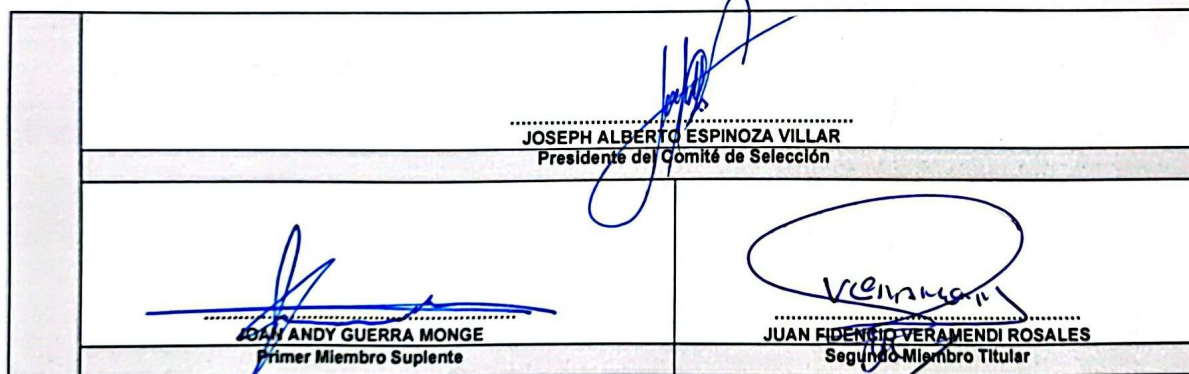 JOSEPH ALBERTO ESPINOZA VILLAR
Presidente del Comité de Selección
JOAN ANDY GUERRA MONGE
Primer Miembro Suplente
JUAN FIDENCIO VERAMENDI ROSALES
Segundo Miembro Titular